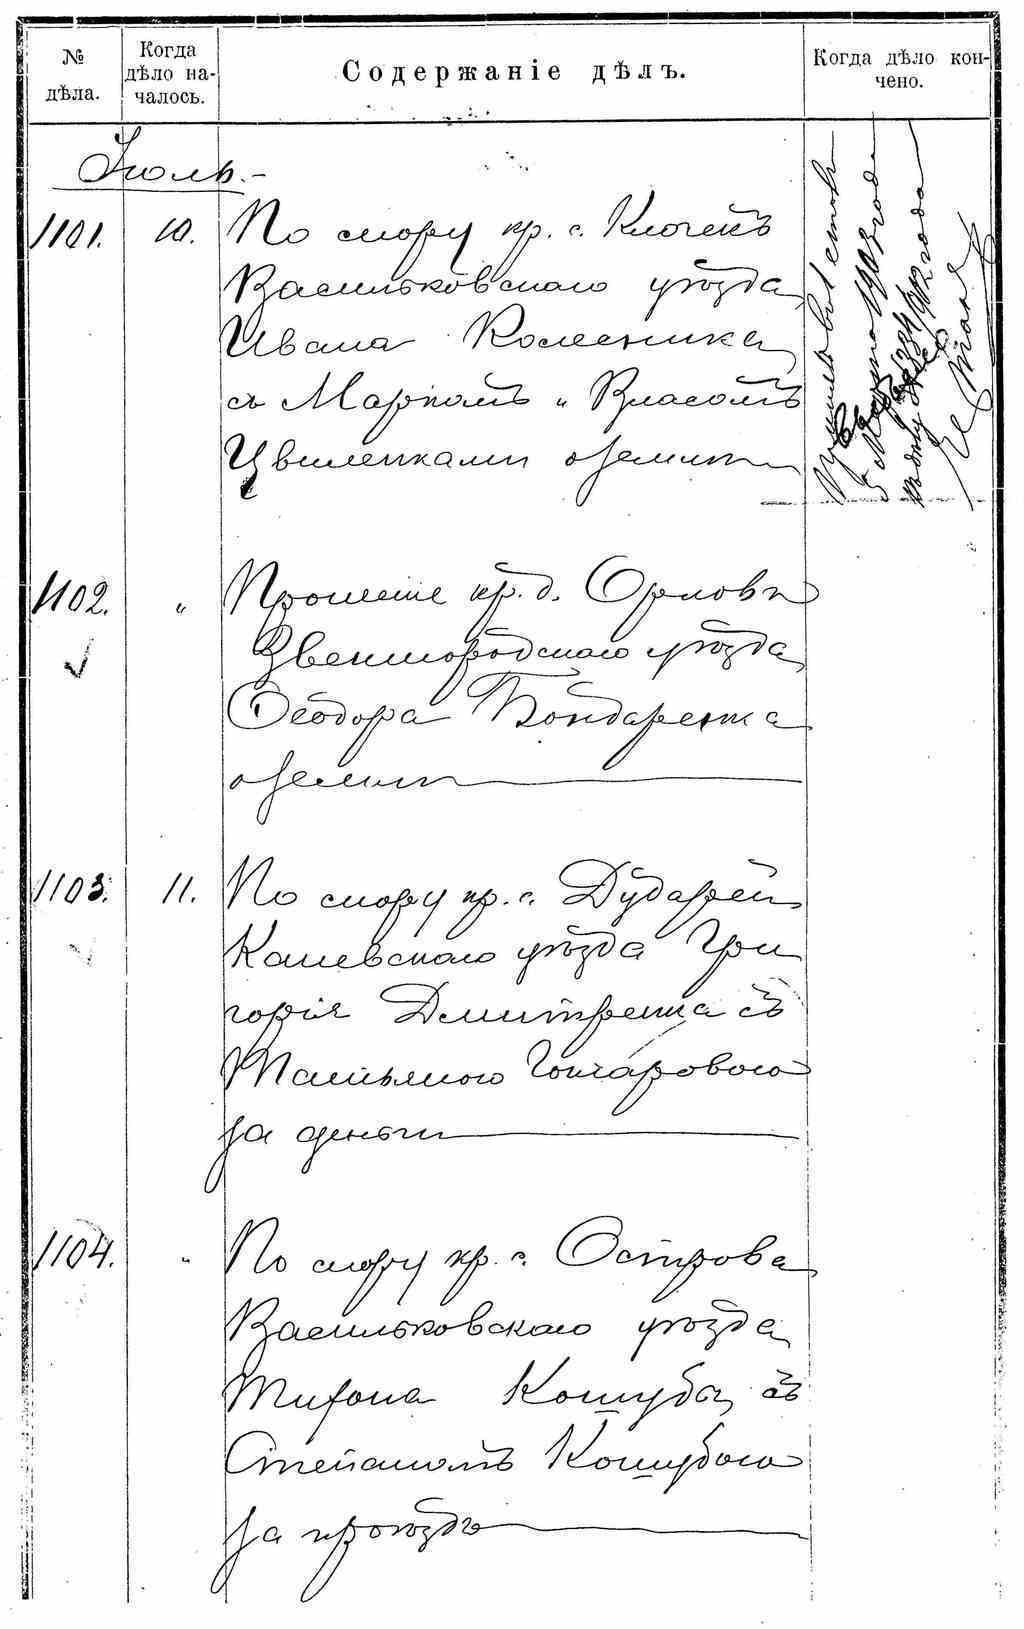 № дѣла.
Когда дѣло на-
чалось.
Содержаніе дѣлъ.
Когда дѣло кон-
чено.
Іюль.-
1101. 10. По спору кр. с. Ключекъ
Васильковскаго уѣзда
Ивана Колесника
съ Маркомъ и Власомъ
Цвиленками о земли
1102. " Прошеніе кр. д. Орловъ
Звенигородскаго уѣзда
Ѳеодора Бондаренка
о земли
1103. 11. По спору кр. с. Дударей
Каневскаго уѣзда Гри
горія Дмитренка съ
Татьяною Гончаровою
за деньги
1104. " По спору кр. с. Острова
Васильковскаго уѣзда
Тифона Кошубы съ
Степаномъ Кошубою
за проѣздъ